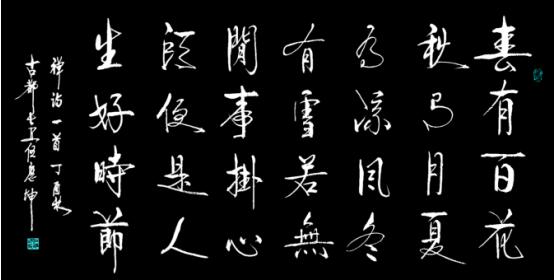 春有百花
秋有月夏
有涼風冬
有雪若無
閒事掛心
頭便是人
生好時節
禅詩一首丁酉秋
古都